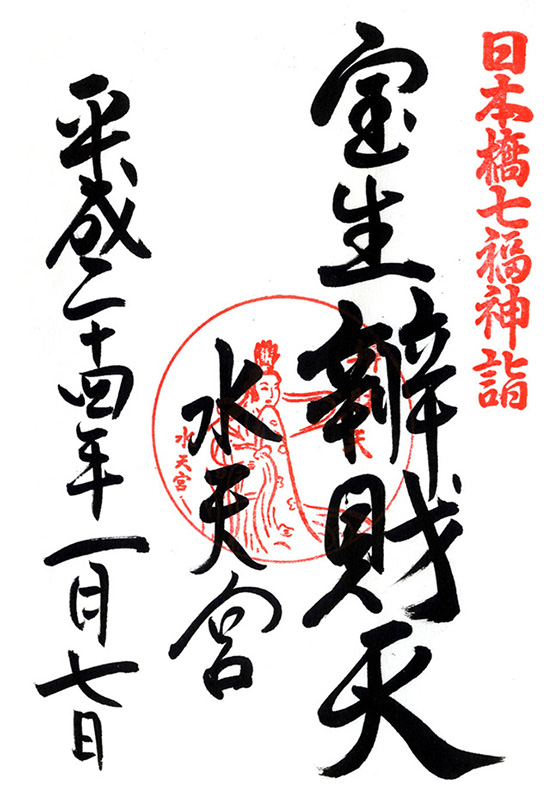 日本橋七福神詣
宝生辨財天
水天宮
水天宮
平成二十四年一月七日